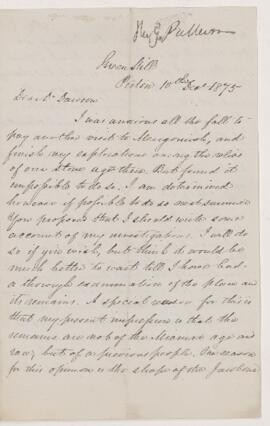 Rev Geo Patterson
Green Hill
Pictou 10th Dec 1875
Dear Dr Dawson
I was anxious all the fall to
pay another visit to Merigomish, and
finish my explorations among the relics
of our stone age there. But found it
impossible to do so. I am determined
however if possible to do so next summer
You proposed that I should write some
account of my investigations. I will do
so if you wish, but think it would be
much better to wait till I have had
a thorough examination of the place and
its remains. A special reason for this is
that my present impression is that the
remains are not of the Micmac age and
race, but of a previous people. One reason
for this opinion is the shape of the